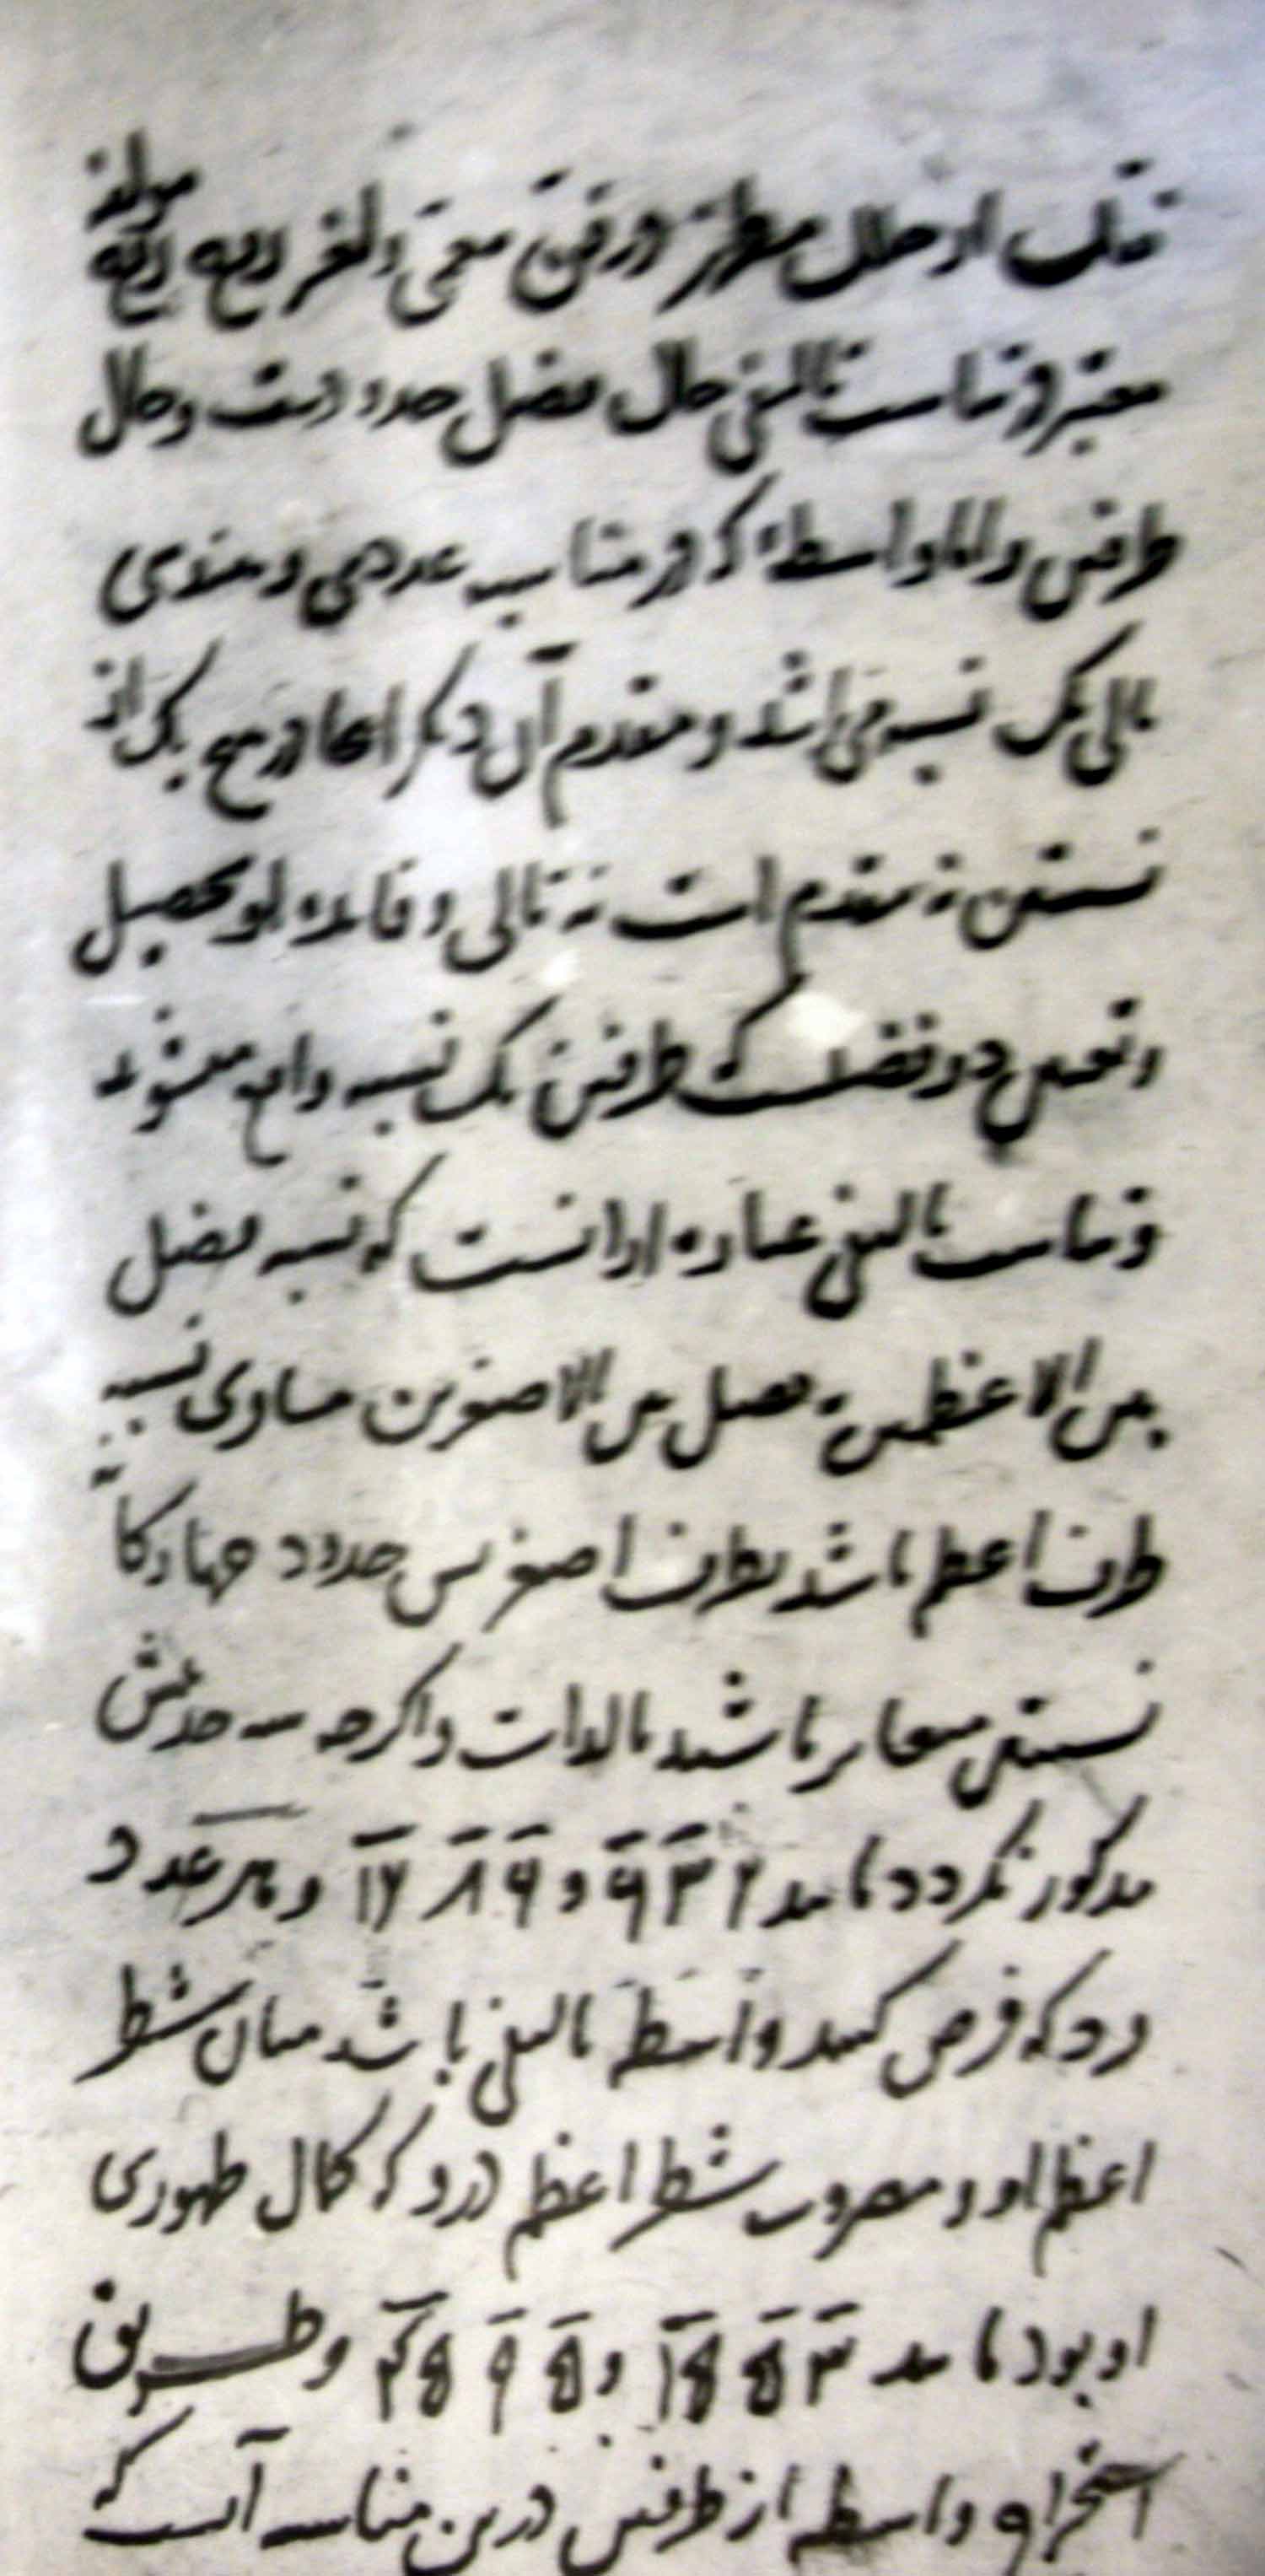 از حلل مطرز در فن معمی و لغز
معتبر و مناسبت تالیفی حال فضل حدود است و حال
طرفین و اما واسطه که در مناسبت عددی و هندسی
تالی یک نسبه می باشد و مقدم آن دیگر اینجا در هیچ یک از
نسبتین نه مقدم است نه تالی و فایده او تحصیل
و تعیین دو فضلست که طرفین یک نسبه واقع میشوند
و مناسبت تالیفی عباره از آنست که نسبه فضل
بین الاعظمین به فضل بین الاصغرین مساوی نسبه
طرف اعظم باشد بطرف اصغر پس حدود چهارگانه
نسبتین متغایر باشند بالذات و اگرچه حدش
مذکور نگردد مانند ۲ ۳ ۶ و ۶ ۸ ۱۲ و هر عدد
فرد که فرض کنند واسطه تالیفی باشد میان شطر
اعظم او و مضروب شطر اعظم در و که کمال ظهوری
او بود مانند ۳ ۵ ۱۵ و ۵ ۹ ۴۵ و طریق
استخراج واسطه از طرفین درین مناسبه آنست که